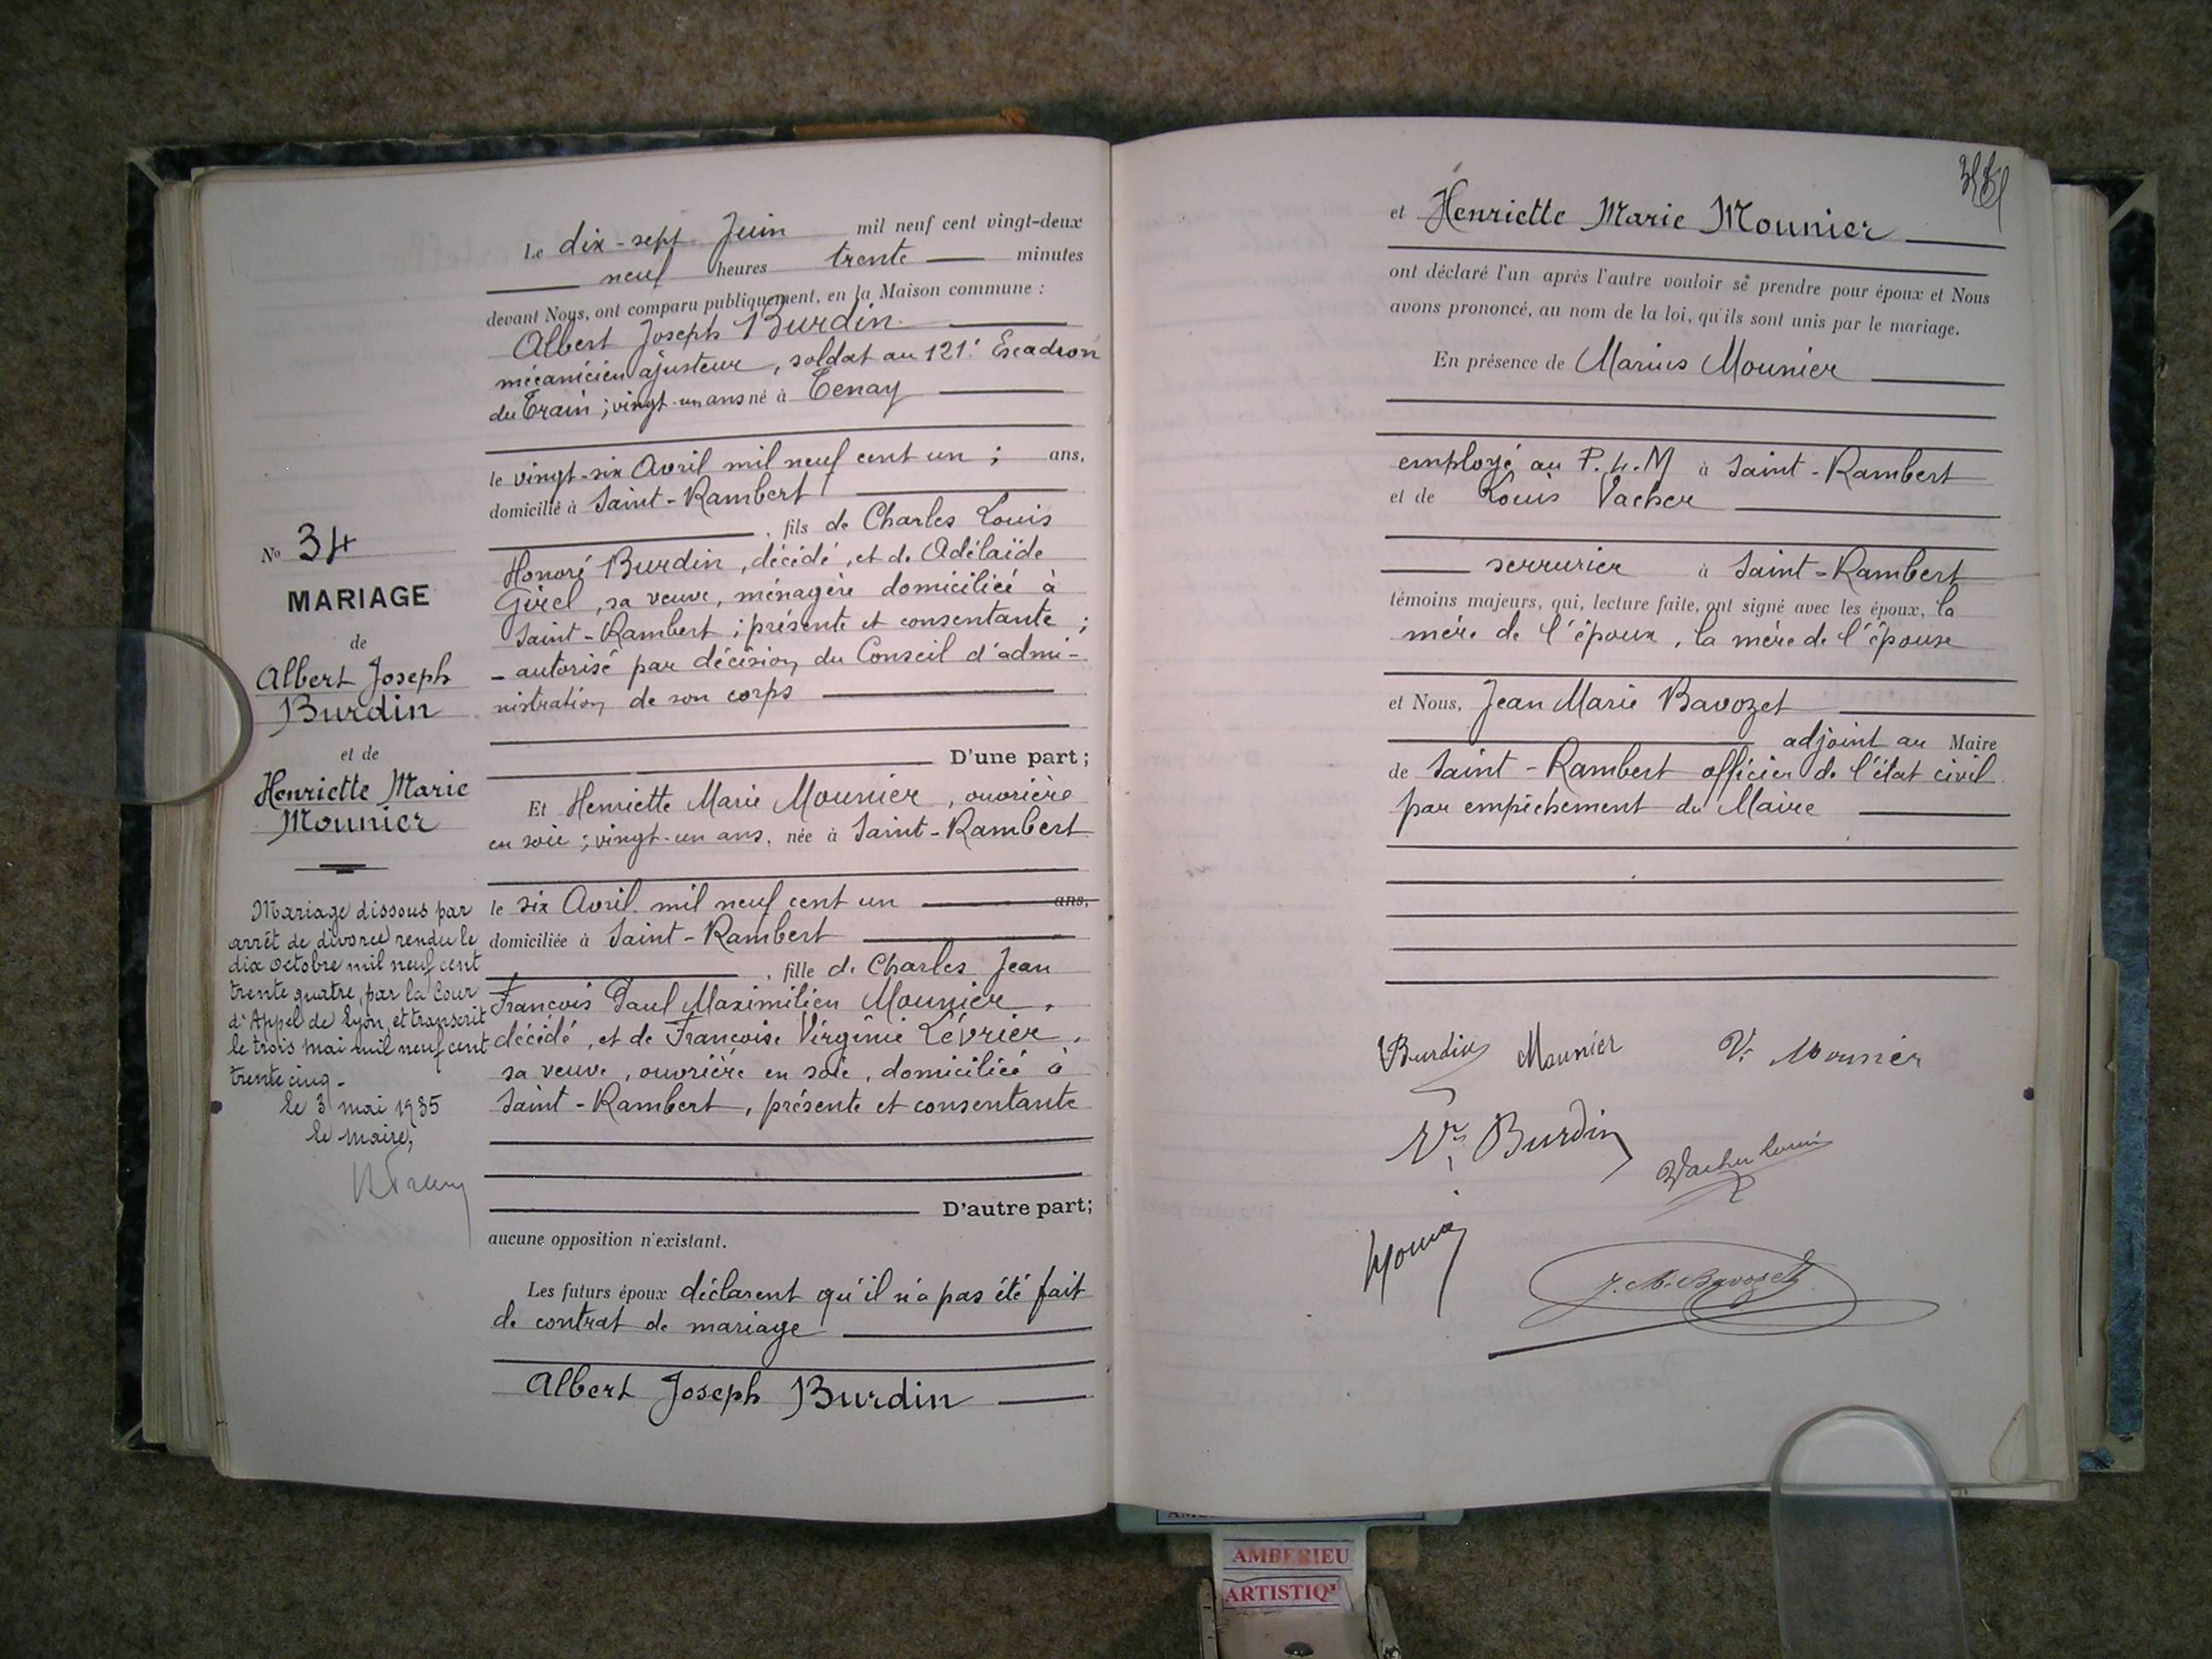 Le dix-sept Juin mil neuf cent vingt-deux
neuf heures trente minutes
devant Nous, ont comparu publiquement, en la Maison commune :
Albert Joseph Burdin
mécanicien ajusteur, soldat au 121e Escadron
du Train ; vingt-un ans né à Tenay
le vingt-six Avril mil neuf cent un ; ans,
domicilié à Saint-Rambert
, fils de Charles Louis
Honoré Burdin, décédé, et de Adélaïde
Girel, sa veuve, ménagère domiciliée à
Saint-Rambert ; présente et consentante ;
- autorisé par décision du Conseil d'admi-
nistration de son corps
D'une part ;
Et Henriette Marie Mounier, ouvrière
en soie ; vingt-un ans, née à Saint-Rambert
le six Avril mil neuf cent un ans,
domiciliée à Saint-Rambert
, fille de Charles Jean
François Paul Maximilien Mounier,
décédé, et de Françoise Virginie Lévrier,
sa veuve, ouvrière en soie, domiciliée à
Saint-Rambert, présente et consentante
D'autre part ;
aucune opposition n'existant.
Les futurs époux déclarent qu'il n'a pas été fait
de contrat de mariage
Albert Joseph Burdin
No 34
MARIAGE
de
Albert Joseph
Burdin
et de
Henriette Marie
Mounier
Mariage dissous par
arrêt de divorce rendu le
dix octobre mil neuf cent
trente quatre, par la Cour
d'Appel de Lyon, et transcrit
le trois mai mil neuf cent
trente cinq -
le 3 mai 1935
le maire,
et Henriette Marie Mounier
ont déclaré l'un après l'autre vouloir se prendre pour époux et Nous
avons prononcé, au nom de la loi, qu'ils sont unis par le mariage.
En présence de Marius Mounier
employé au P.L.M à Saint-Rambert
et de Louis Vacher
serrurier à Saint-Rambert
témoins majeurs, qui, lecture faite, ont signé avec les époux, la
mère de l'époux, la mère de l'épouse
et Nous, Jean Marie Bavozet
adjoint au Maire
de Saint-Rambert officier de l'état civil
par empêchement du Maire
Burdin Mounier Ve Mounier
Ve Burdin
Vacher Louis
J. M. Bavozet
AMBERIEU
ARTISTIQ